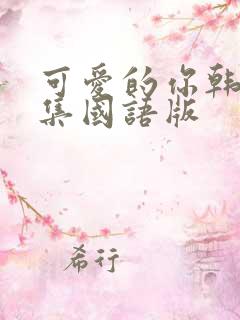 可愛的你韩
集國語版
希行